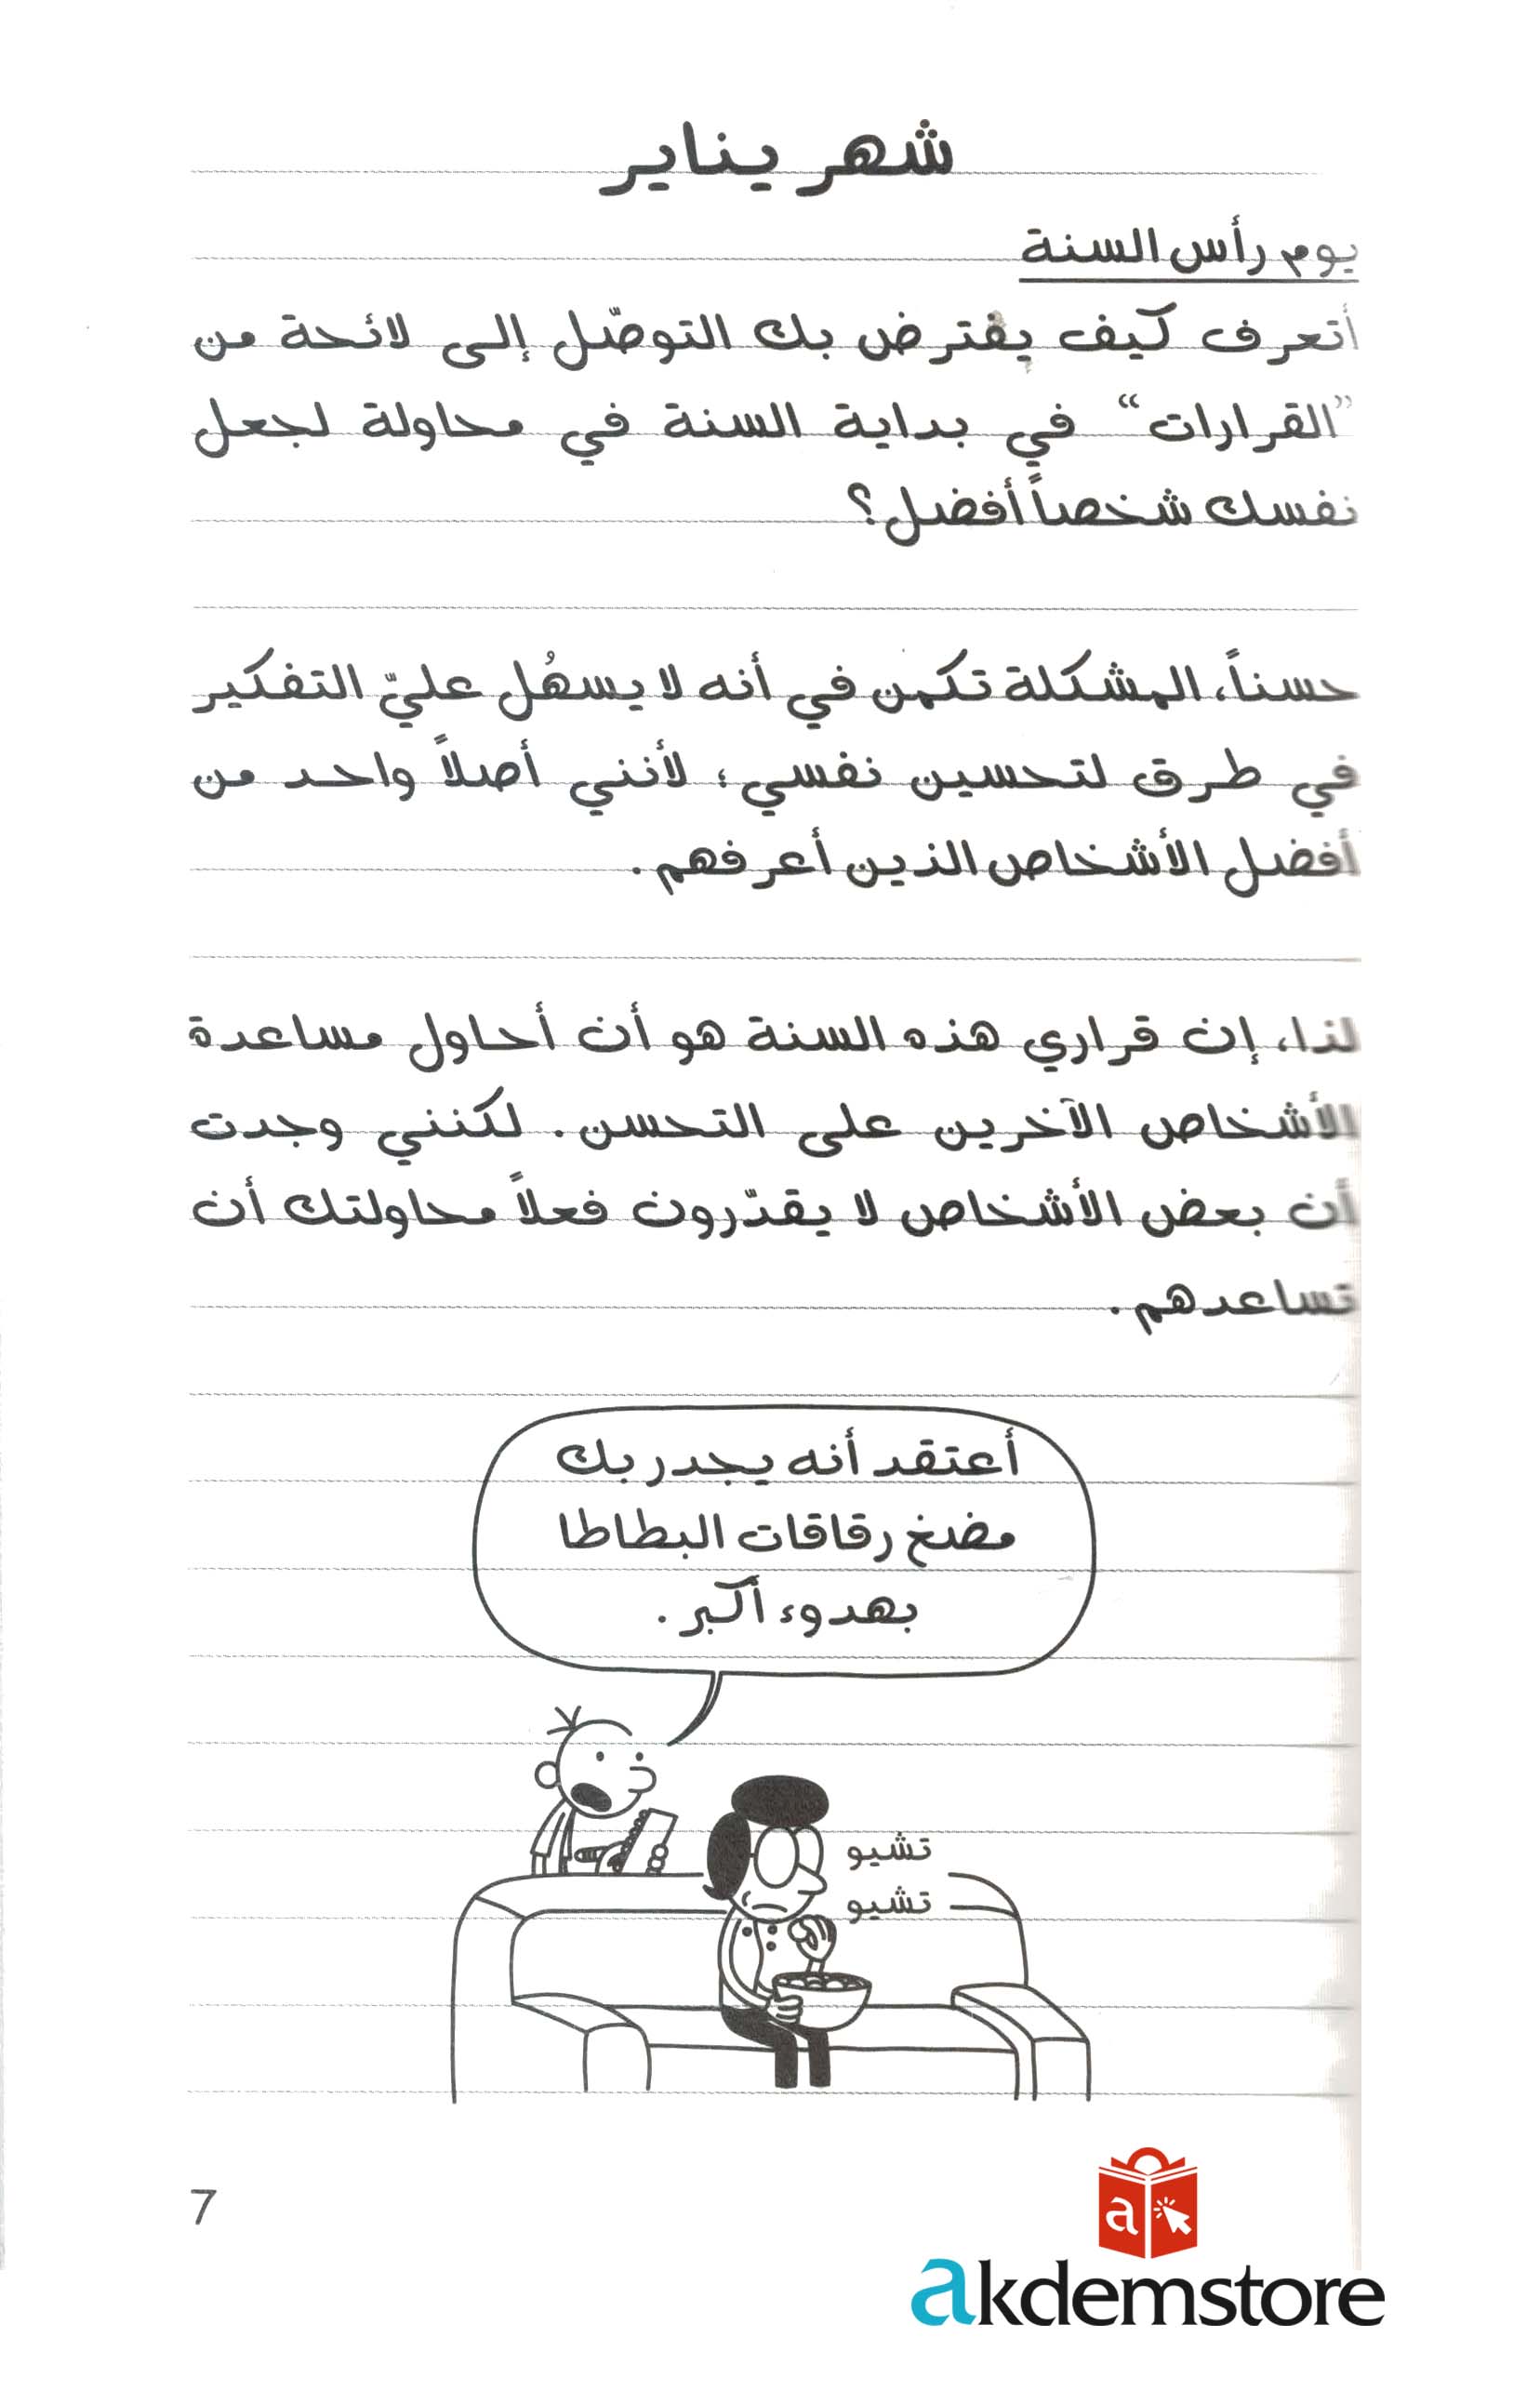 شهر يناير
يوم رأس السنة
أتعرف كيف يفترض بك التوصّل إلى لائحة من
"القرارات" في بداية السنة في محاولة لجعل
نفسك شخصاً أفضل؟
حسناً، المشكلة تكمن في أنه لا يسهُل عليّ التفكير
في طرق لتحسين نفسي؛ لأنني أصلاً واحد من
أفضل الأشخاص الذين أعرفهم.
لذا، إن قراري هذه السنة هو أن أحاول مساعدة
الأشخاص الآخرين على التحسن. لكنني وجدت
أن بعض الأشخاص لا يقدّرون فعلاً محاولتك أن
تساعدهم.
أعتقد أنه يجدر بك
مضغ رقاقات البطاطا
بهدوء أكبر.
تشيو
تشيو
7
a
akdemstore